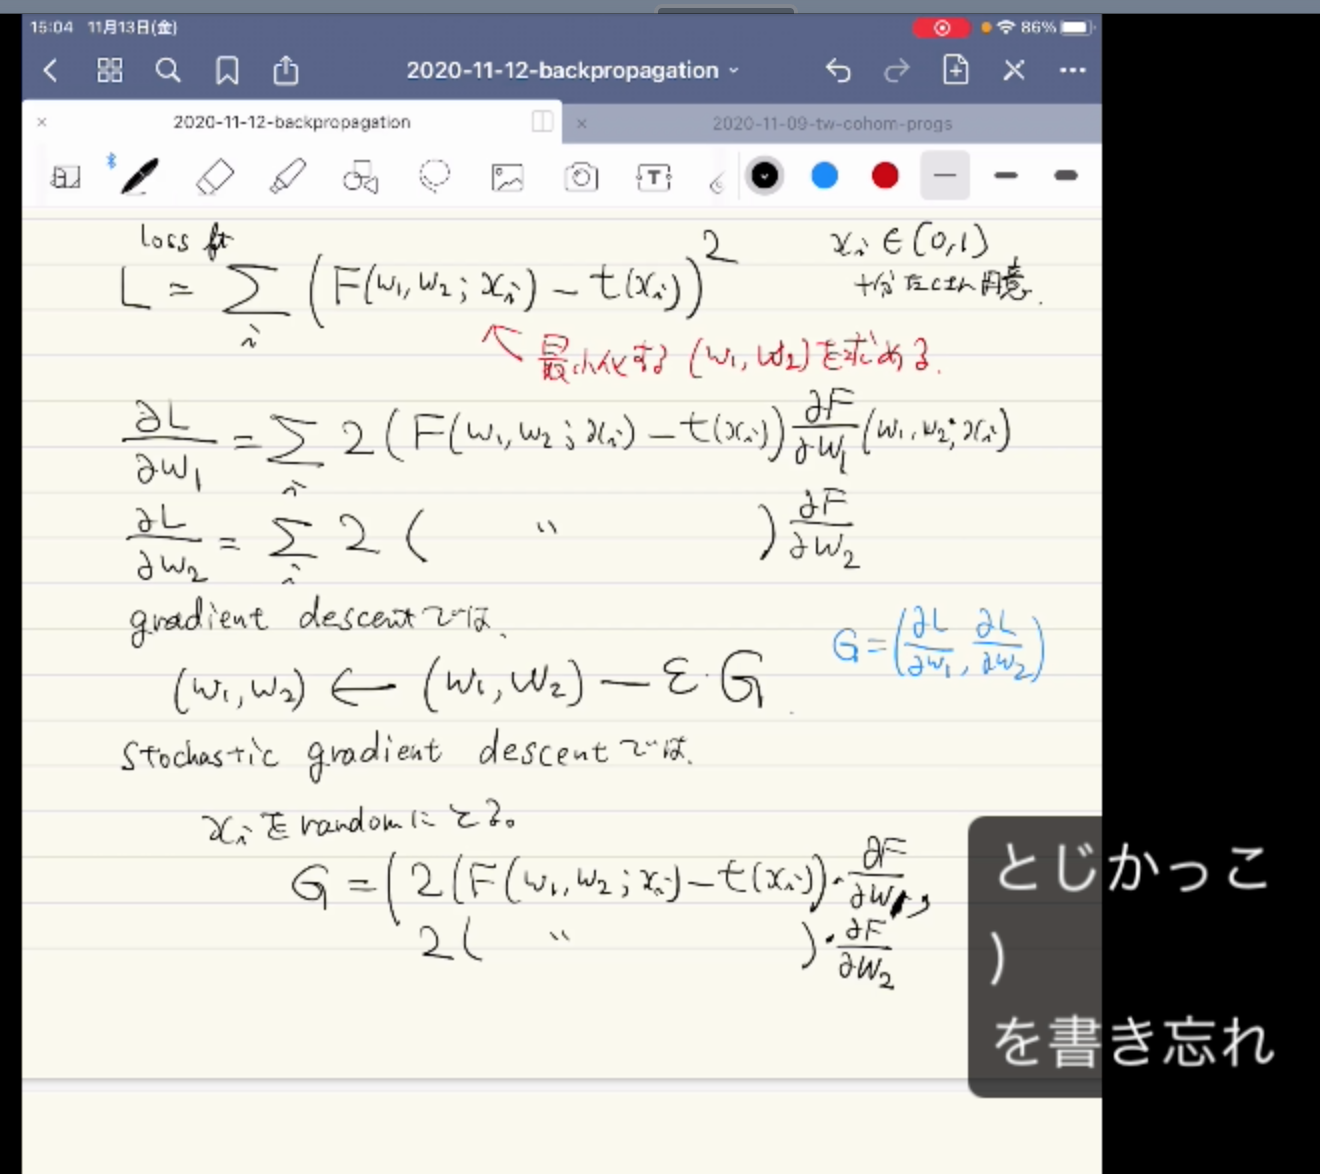 15:04 11月13日(金) 86%
2020-11-12-backpropagation
2020-11-12-backpropagation 2020-11-09-tw-cohom-progs
T
loss ft
L = Σ_i (F(w₁, w₂; xᵢ) − t(xᵢ))²
xᵢ ∈ [0,1)
十分たくさん用意.
最小化する (w₁, w₂) を求める.
∂L/∂w₁ = Σ_i 2 (F(w₁, w₂; xᵢ) − t(xᵢ)) ∂F/∂w₁ (w₁, w₂; xᵢ)
∂L/∂w₂ = Σ_i 2 ( " ) ∂F/∂w₂
gradient descent では、
G = (∂L/∂w₁, ∂L/∂w₂)
(w₁, w₂) ← (w₁, w₂) − ε·G.
Stochastic gradient descent では、
xᵢ を random にとる。
G = (2(F(w₁, w₂; xᵢ) − t(xᵢ))·∂F/∂w₁,
2( " )·∂F/∂w₂
とじかっこ
)
を書き忘れ